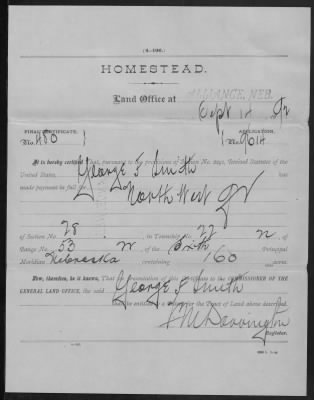 (4—196.)
HOMESTEAD.
Land Office at ALLIANCE, NEB.
Sept 14
FINAL CERTIFICATE, APPLICATION,
No. 480 No.
It is hereby certified That, pursuant to the provisions of Section No. 2291, Revised Statutes of the
United States, George F Smith has
made payment in full for North West Qr
of Section No. 28 in Township No. 22 N
of Range No. 53 W, of the Sixth Principal
Meridian Nebraska containing 160 acres.
Now, therefore, be it known, That on presentation of this Certificate to the COMMISSIONER OF THE
GENERAL LAND OFFICE, the said George F Smith
shall be entitled to a Patent for the Tract of Land above described.
F M Dorrington
Register.